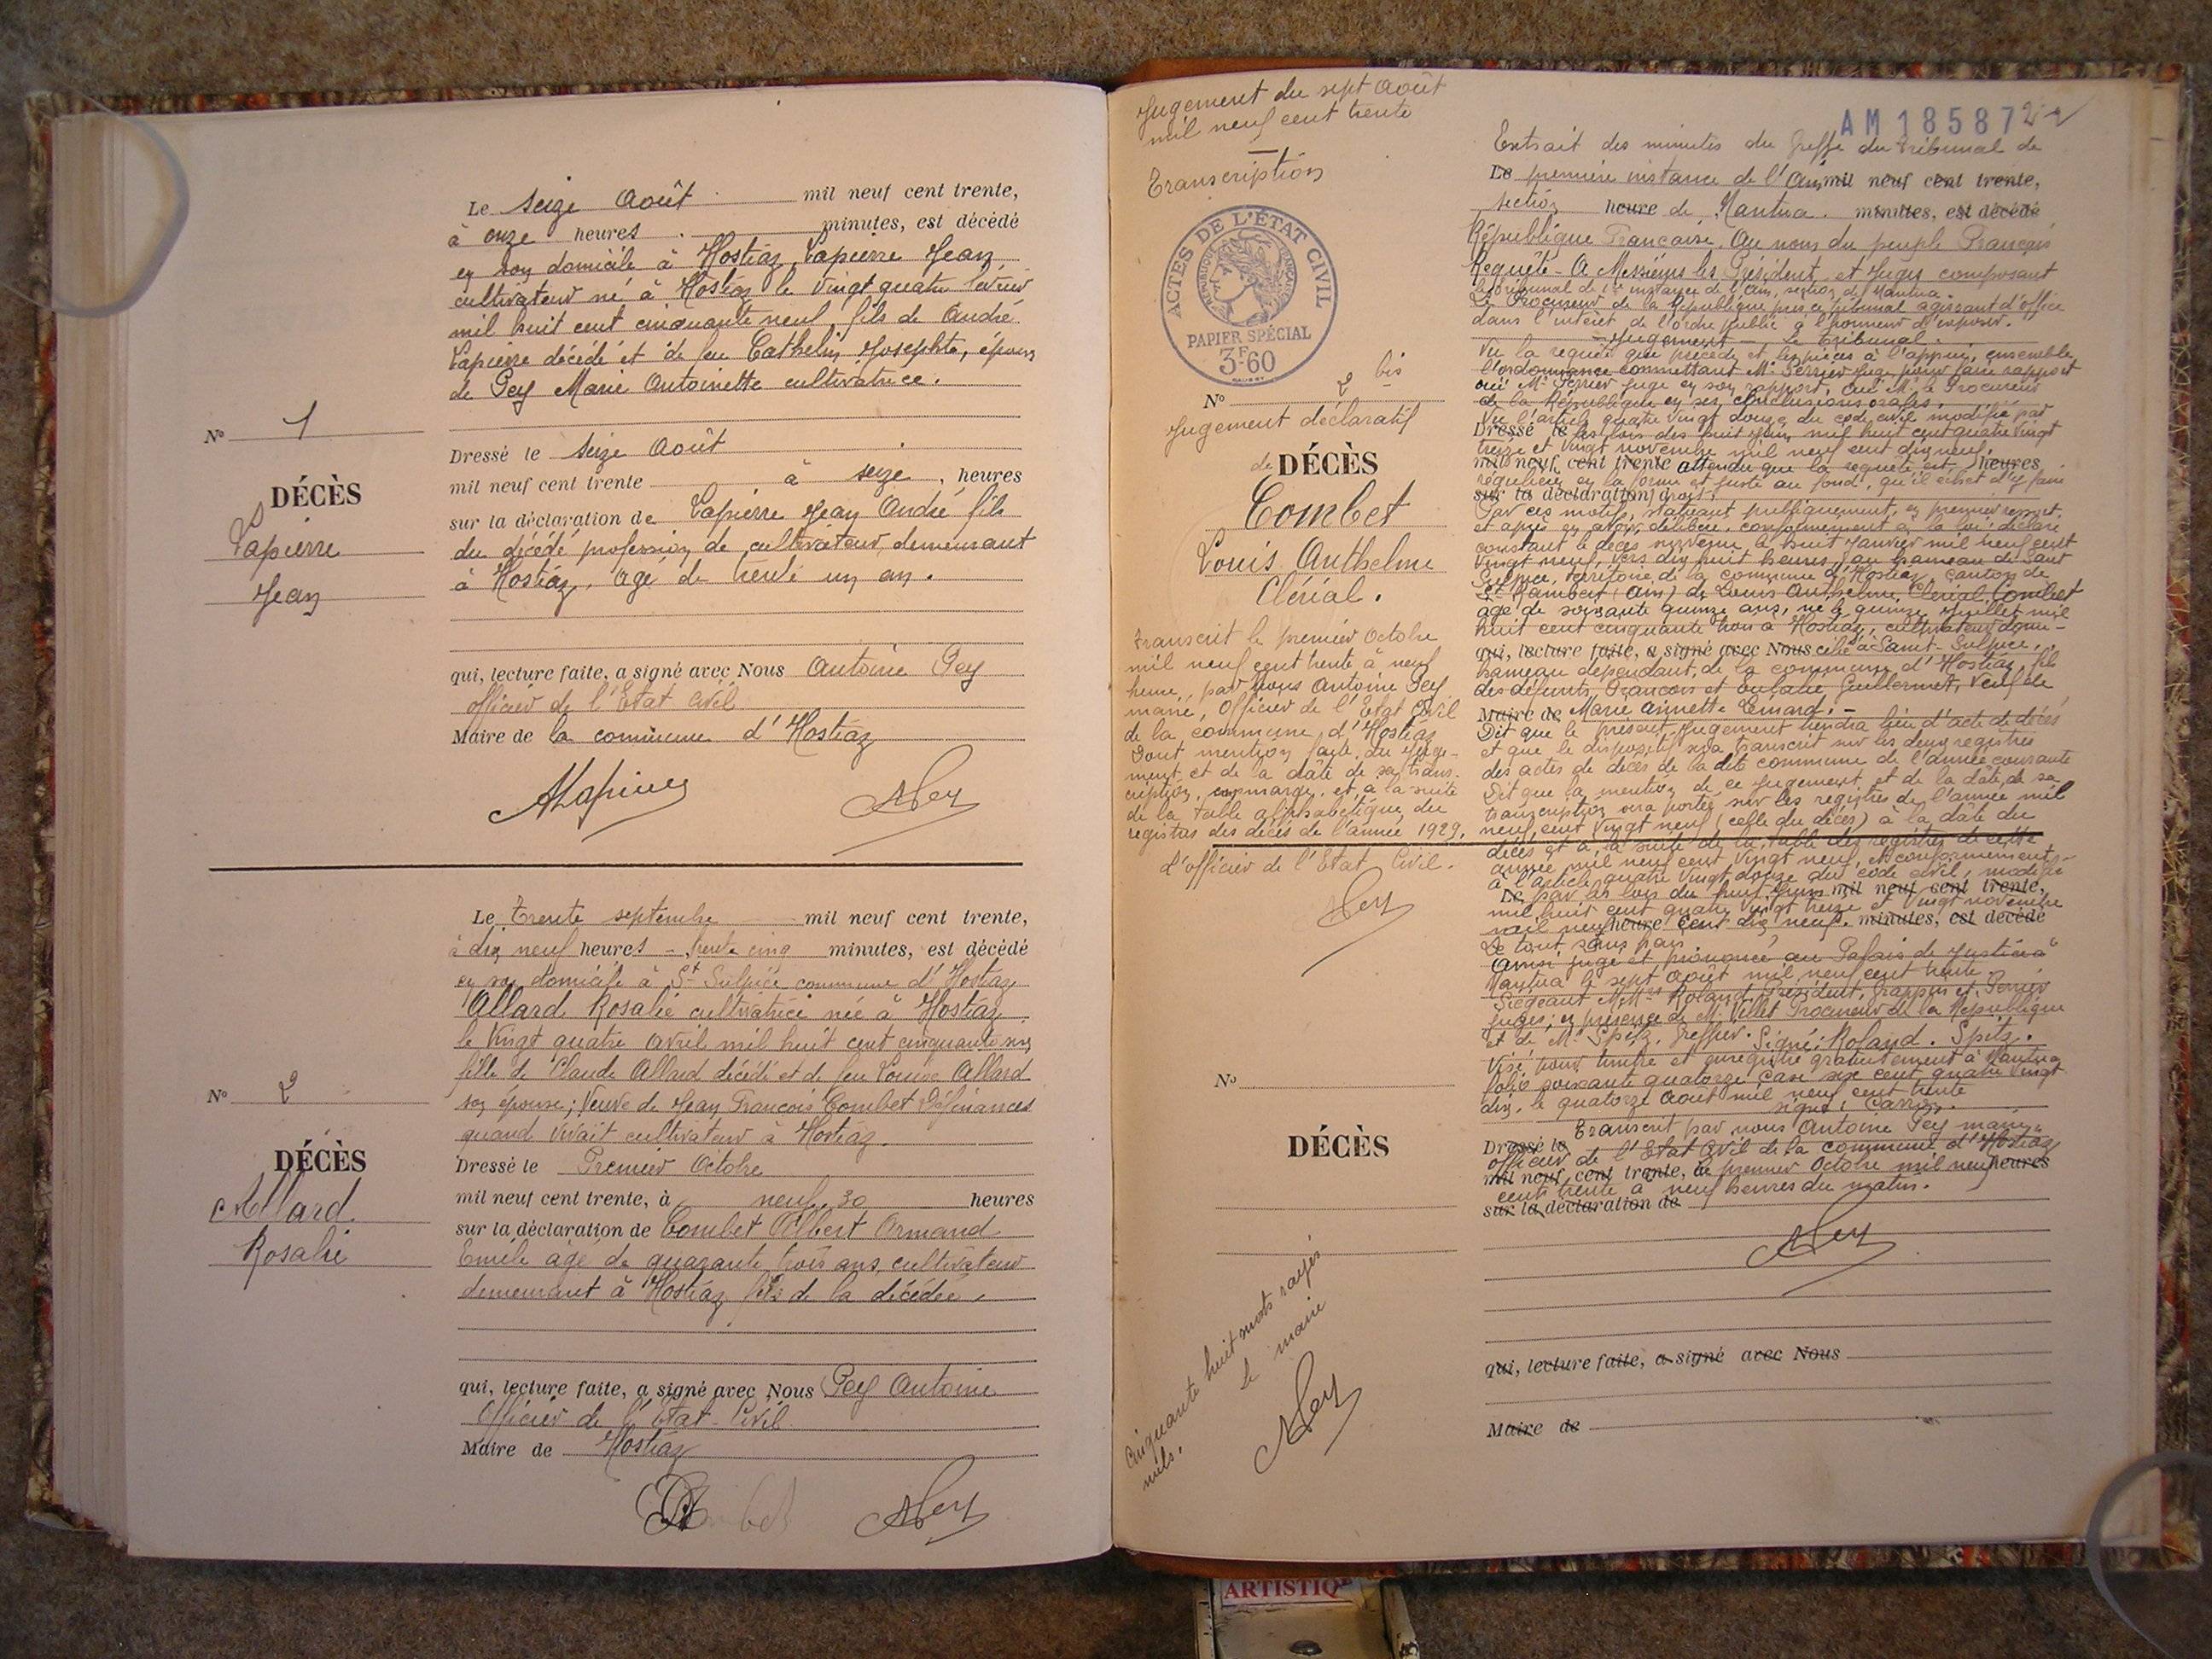 Le seize Août mil neuf cent trente,
à onze heures minutes, est décédé
en son domicile à Hostiaz Lapierre Jean
cultivateur né à Hostiaz le vingt quatre février
mil huit cent cinquante neuf, fils de André
Lapierre décédé et de feu Cathelin Josephte, époux
de Pey Marie Antoinette cultivatrice.
Nº 1
DÉCÈS
Lapierre
Jean
Dressé le seize Août
mil neuf cent trente à seize, heures
sur la déclaration de Lapierre Jean André fils
du décédé profession de cultivateur, demeurant
à Hostiaz, agé de trente un an.
qui, lecture faite, a signé avec Nous Antoine Pey
officier de l'Etat Civil
Maire de la commune d'Hostiaz
ALapierre APey
Le trente septembre mil neuf cent trente,
à dix neuf heures - trente cinq minutes, est décédé
en son domicile à St Sulpice commune d'Hostiaz
Allard Rosalie cultivatrice née à Hostiaz
le vingt quatre avril mil huit cent cinquante
fille de Claude Allard décédé et de feu Louise Allard
son épouse; Veuve de Jean François Combet Définances
quand vivait cultivateur à Hostiaz.
Nº 2
DÉCÈS
Allard
Rosalie
Dressé le Premier Octobre
mil neuf cent trente, à neuf 30 heures
sur la déclaration de Combet Albert Armand
Emile âgé de quarante trois ans, cultivateur
demeurant à Hostiaz fils de la décédée,
qui, lecture faite, a signé avec Nous Pey Antoine
Officier de l'Etat-Civil
Maire de Hostiaz
APey
Jugement du sept Août
mil neuf cent trente
Transcription
ACTES DE L'ÉTAT CIVIL
RÉPUBLIQUE FRANÇAISE
PAPIER SPÉCIAL
3F.60
Nº 2 bis
Jugement déclaratif
de DÉCÈS
Combet
Louis Anthelme
Clérial.
Transcrit le premier Octobre
mil neuf cent trente à neuf
heure, par Nous Antoine Pey
maire, Officier de l'Etat Civil
de la commune d'Hostiaz
Dont mention faite du Juge-
ment et de la date de sa trans-
cription, en marge, et à la suite
de la table alphabétique du
registre des décès de l'année 1929.
L'officier de l'Etat Civil.
APey
Nº
DÉCÈS
Cinquante huit mots rayés
nuls.
Le maire
APey
AM 185872
Extrait des minutes du Greffe du tribunal de
Le première instance de l'Ain, mil neuf cent trente,
section heure de Nantua. minutes, est décédé
République Française. Au nom du peuple Français
Requête - A Messieurs les Président et Juges composant
le tribunal de 1re instance de l'Ain, section de Nantua.
Le Procureur de la République près ce tribunal agissant d'office
dans l'intérêt de l'ordre public a l'honneur d'exposer.
- Jugement - Le Tribunal.
Vu la requête qui précède et les pièces à l'appui, ensemble
l'ordonnance commettant Mr Perrier Juge pour faire rapport
ouï Mr Perrier Juge en son rapport, ouï Mr le Procureur
de la République en ses conclusions orales.
Vu l'article quatre vingt douze du code civil modifié par
Dressé le les lois des huit Juin mil huit cent quatre vingt
treize et vingt novembre mil neuf cent dix neuf.
mil neuf cent trente attendu que la requête est heures
régulière en la forme et juste au fond, qu'il échet d'y faire
sur la déclaration droit.
Par ces motifs, statuant publiquement, en premier ressort
et après en avoir délibéré conformément à la loi: déclare
constant le décès survenu le huit Janvier mil neuf cent
vingt neuf, vers dix huit heures, au hameau de Saint
Sulpice, territoire de la commune d'Hostiaz, canton de
St Rambert (Ain) de Louis Anthelme Clérial Combet
âgé de soixante quinze ans, né le quinze Juillet mil
huit cent cinquante trois à Hostiaz, cultivateur domi-
qui, lecture faite, a signé avec Nous cilié à Saint-Sulpice,
hameau dépendant de la commune d'Hostiaz, fils
des défunts François et Eulalie Guillermet, veuf de
Maire de Marie Annette Lemard.-
Dit que le présent Jugement tiendra lieu d'acte de décès
et que le dispositif sera transcrit sur les deux registres
des actes de décès de la dite commune de l'année courante
Dit que la mention de ce Jugement et de la date de sa
transcription sera portée sur les registres de l'année mil
neuf cent vingt neuf (celle du décès) à la date du
décès et à la suite de la table des registres de cette
année mil neuf cent vingt neuf, et conformément
à l'article quatre vingt douze du code civil, modifié
Le par les lois du huit Juin mil neuf cent trente,
mil huit cent quatre vingt treize et vingt novembre
mil neuf heure cent dix neuf. minutes, est décédé
Le tout sans frais.
Ainsi jugé et prononcé au Palais de Justice à
Nantua le sept Août mil neuf cent trente
Siégeant M.Mrs Roland, Président, Grappin et Perrier
Juges; en présence de M. Villet Procureur de la République
et de Mr Spitz, Greffier. Signé: Roland. Spitz.
Visé pour timbre et enregistré gratuitement à Nantua
folio soixante quatorze case six cent quatre vingt
dix, le quatorze Août mil neuf cent trente
signé: Carrier.
Transcrit par nous Antoine Pey maire
Dressé le officier de l'Etat Civil de la commune d'Hostiaz
mil neuf cent trente, le premier Octobre mil neuf heures
cent trente à neuf heures du matin.
sur la déclaration de
APey
qui, lecture faite, a signé avec Nous
Maire de
ARTISTIQ